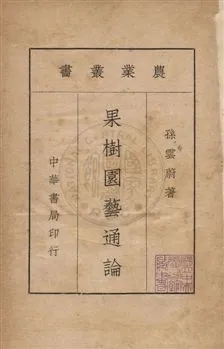 農業叢書
孫雲蔚著
果樹園藝通論
中華書局印行